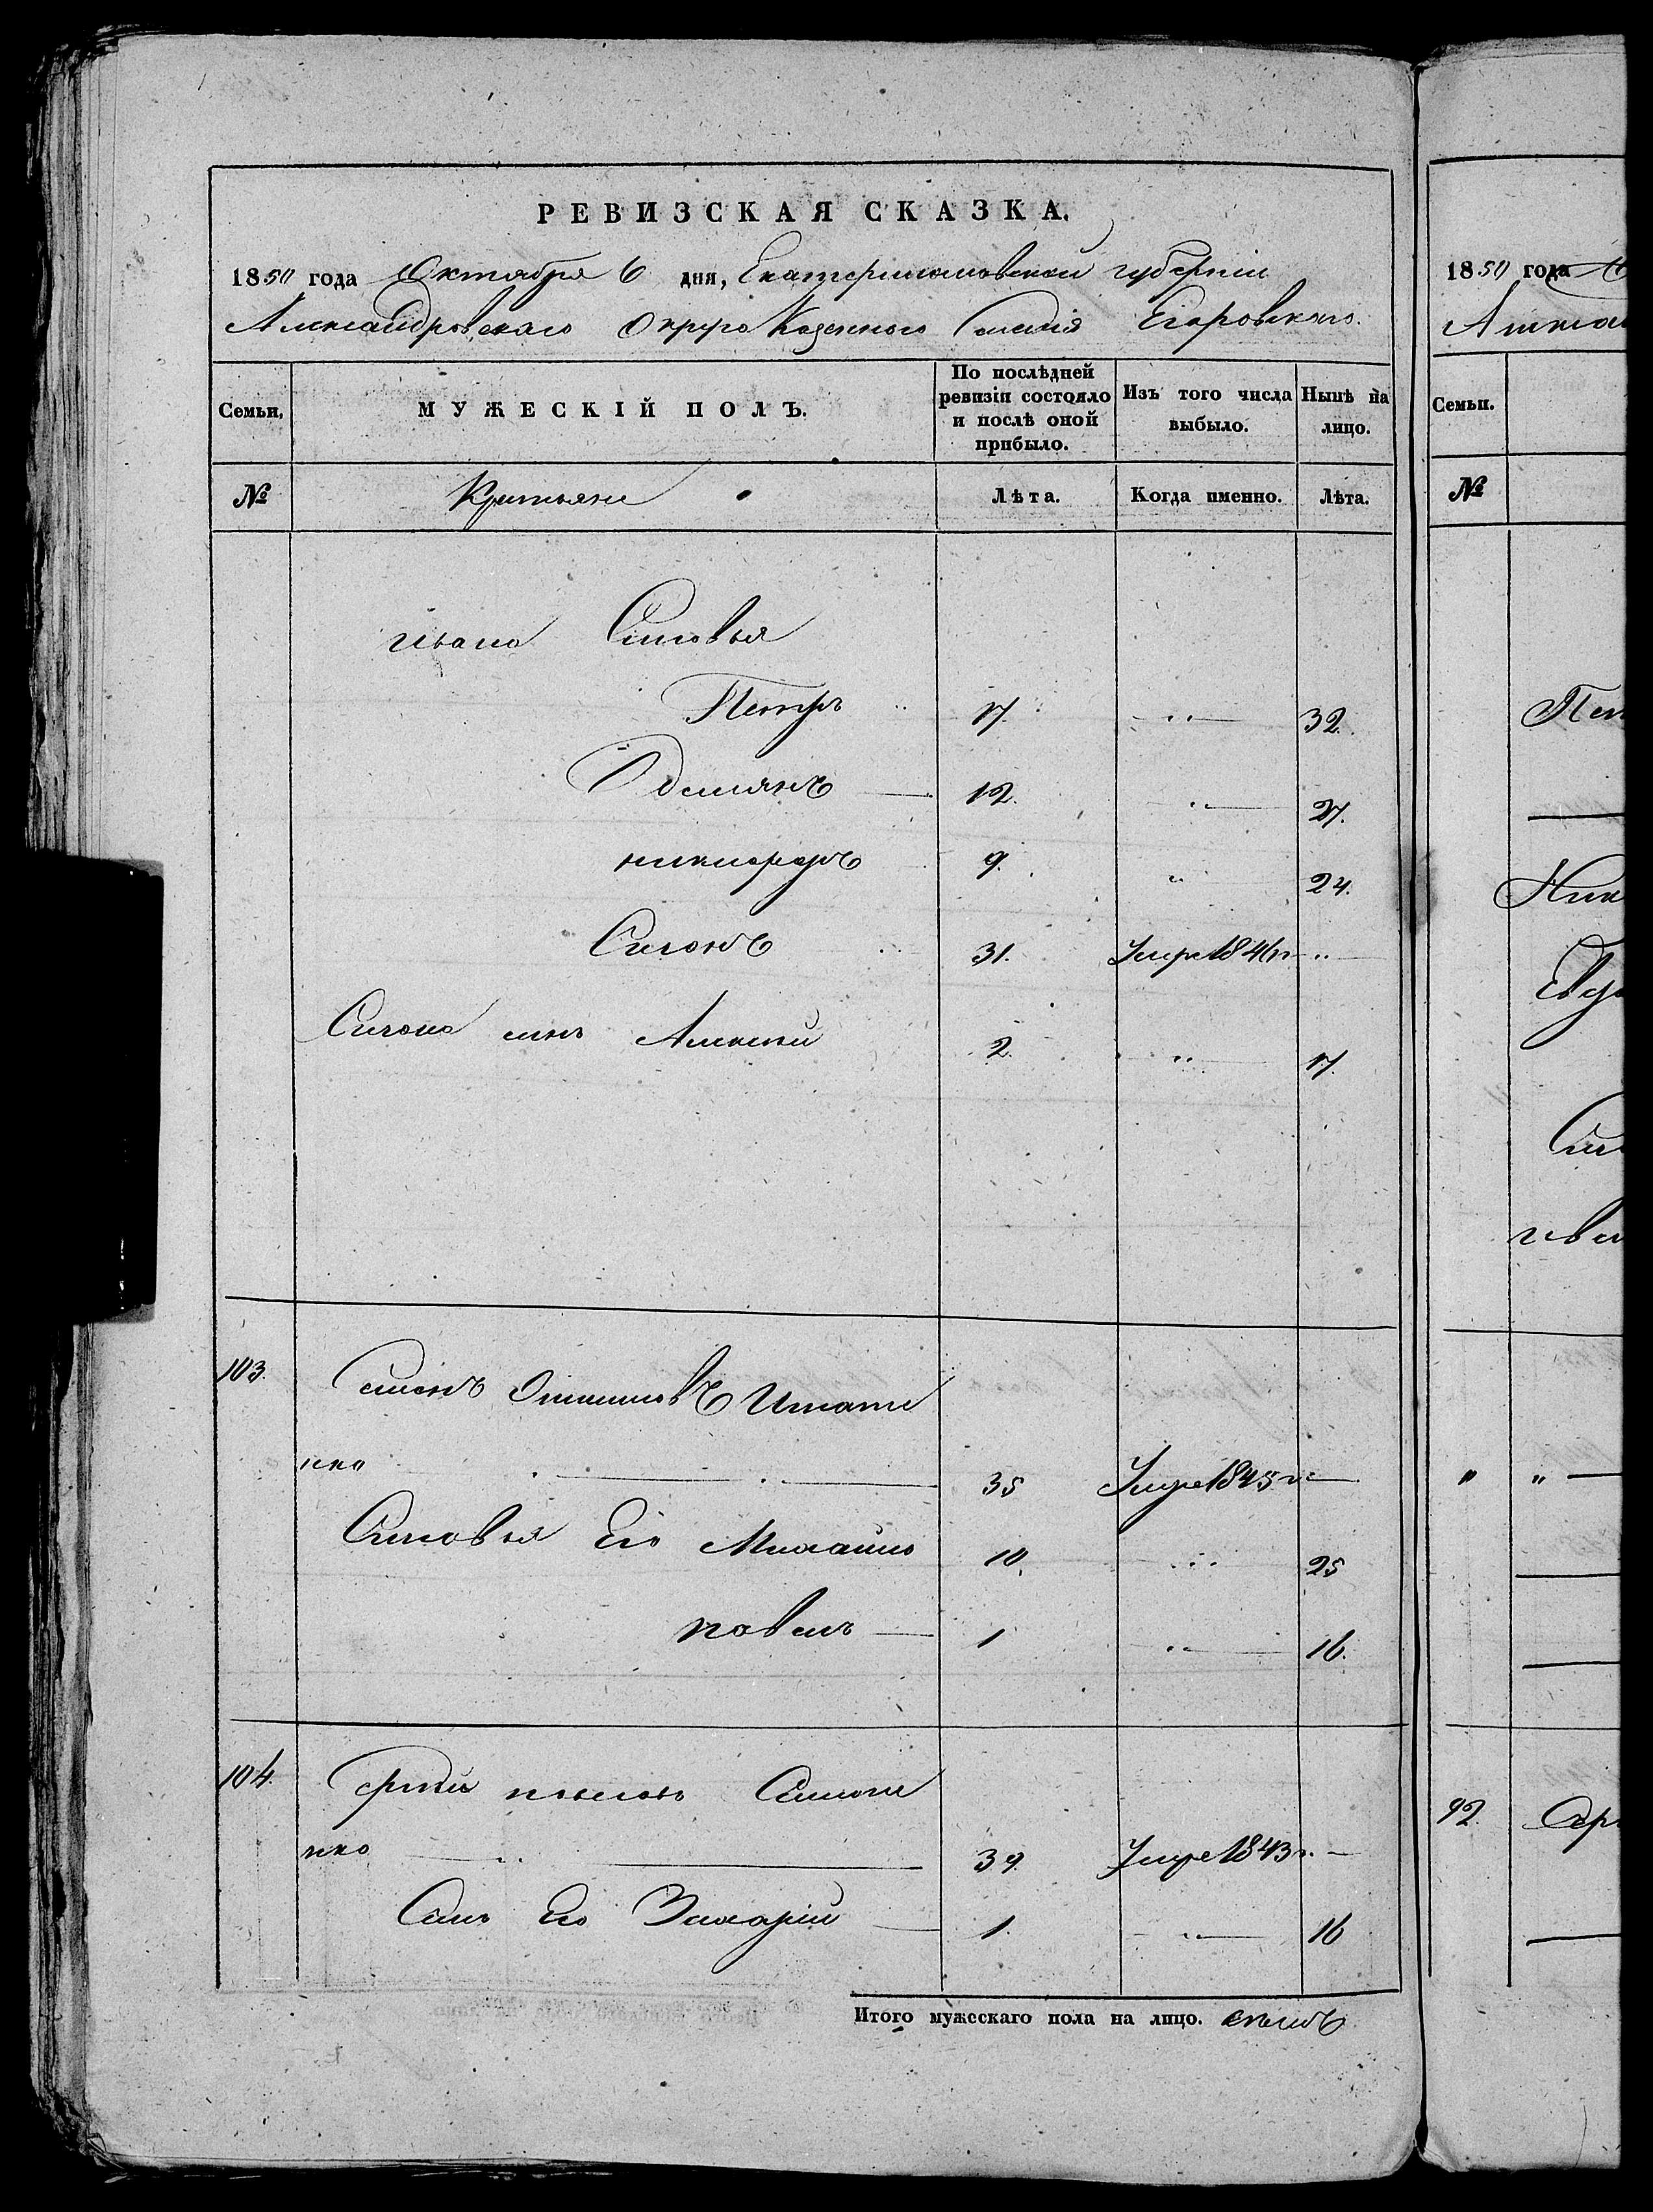 РЕВИЗСКАЯ СКАЗКА.
1850 года Октября 6 дня, Екатеринославской губернии
Александровскаго Округа Казеннаго Селения Егоровскаго.
Семьи, МУЖЕСКІЙ ПОЛЪ. По послѣдней ревизіи состояло и послѣ оной прибыло. Изъ того числа выбыло. Нынѣ на лицо.
№ Крестьяне Лѣта. Когда именно. Лѣта.
Ивана Сыновья
Петръ 17. " 32.
Демянъ 12. " 27.
Никифоръ 9. " 24.
Симонъ 31. Умре 1846 г "
Симона сынъ Алексей 2. " 17.
103. Семенъ Игнате
нко 35 Умре 1845 г
Сыновья Его Михайло 10. " 25
Павелъ 1 " 16.
104. Сергей Симоне
нко 39. Умре 1843 г.
Сынъ Его Захарій 1. " 16
Итого мужескаго пола на лицо. семь
1850 года
Семьи.
№
"
"
92.